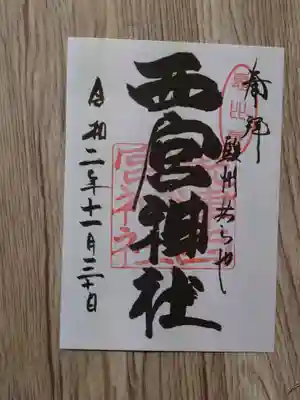 奉拝
駿州
西宮神社
令和二年十一月二十日